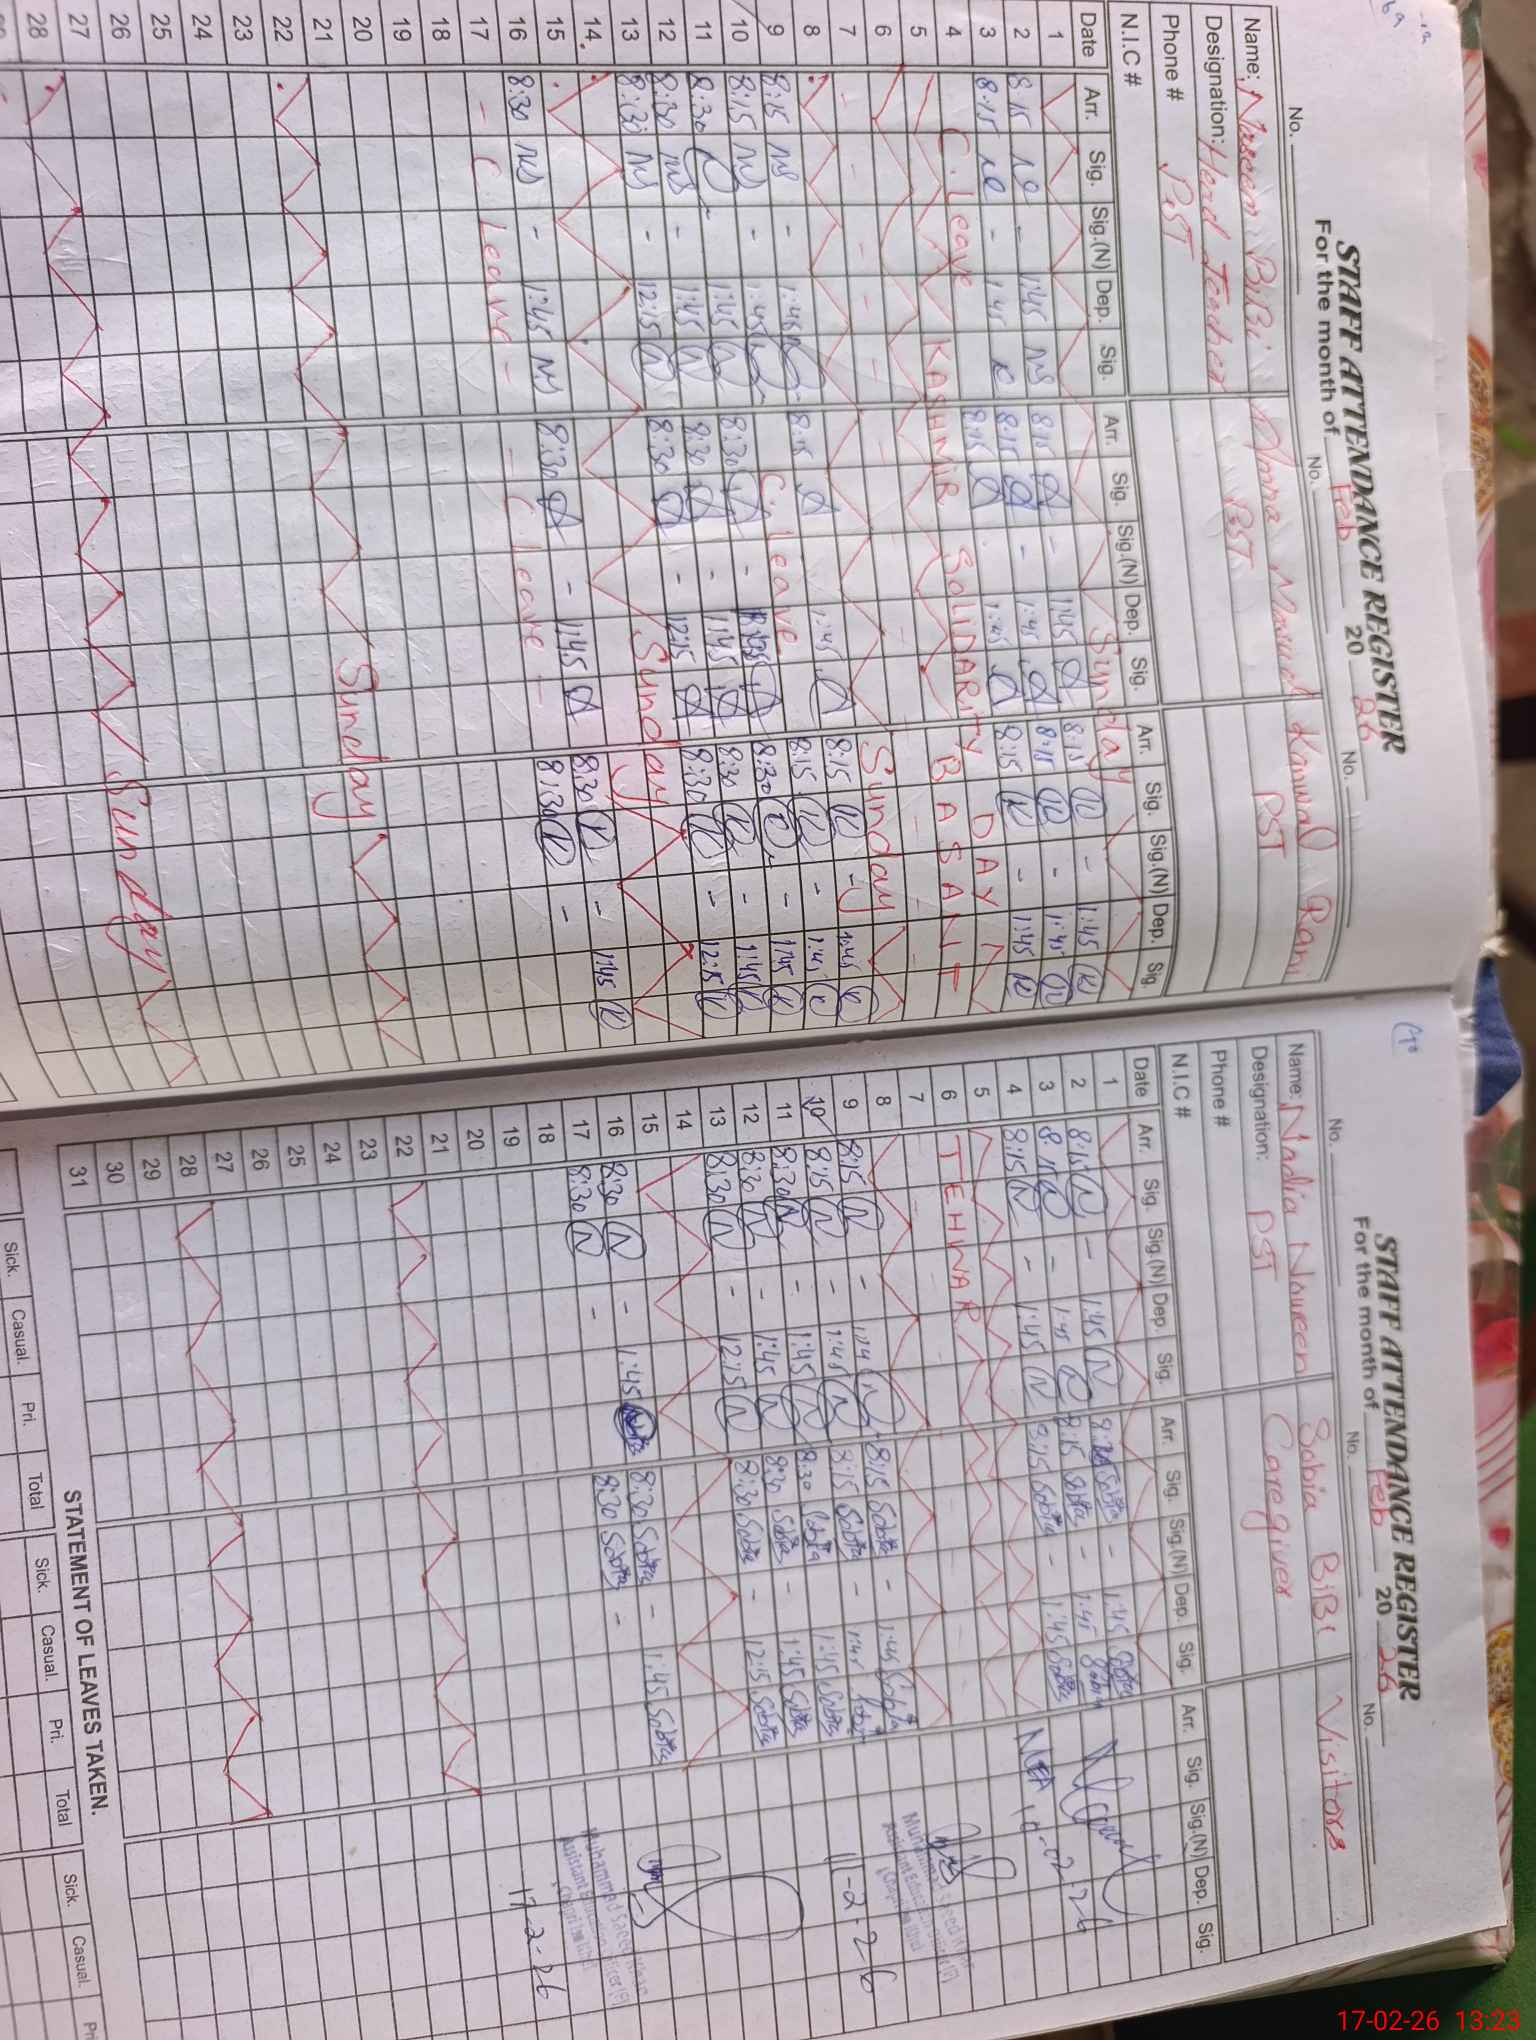 STAFF ATTENDANCE REGISTER
For the month of Feb 20 26
No. No. No.
Name: Nasreen BiBi Amna Kanwal Rani
Designation: Head Teacher PST PST
Phone # PST
N.I.C #
Date Arr. Sig. Sig.(N) Dep. Sig. Arr. Sig. Sig.(N) Dep. Sig. Arr. Sig. Sig.(N) Dep. Sig.
1 Sunday
2 8:15 - 1:45 NS 8:15 - 1:45 8:15 - 1:45
3 8:15 - 1:45 8:15 - 1:45 8:15 - 1:45
4 C. Leave 8:15 1:45 8:15 - 1:45
5 KASHMIR SOLIDARITY DAY
6 BASANT
7
8 Sunday
9 8:15 NS - 1:45 8:15 1:45 8:15 - 1:45
10 8:15 NS - 1:45 C. Leave 8:15 - 1:45
11 8:30 1:45 8:30 - 8:30 - 1:45
12 8:30 NS - 1:45 8:30 - 1:45 8:30 - 1:45
13 8:30 NS - 12:15 8:30 - 12:15 8:30 - 12:15
14
15 Sunday
16 8:30 NS - 1:45 NS 8:30 - 1:45 8:30 - 1:45
17 - C Leave - - C Leave - 8:30 -
18
19
20
21
22 Sunday
23
24
25
26
27
28 Sunday
STAFF ATTENDANCE REGISTER
For the month of Feb 20 26
No. No. No.
Name: Nadia Noureen Sobia BiBi Visitors
Designation: PST Caregiver
Phone #
N.I.C #
Date Arr. Sig. Sig.(N) Dep. Sig. Arr. Sig. Sig.(N) Dep. Sig. Arr. Sig. Sig.(N) Dep. Sig.
1
2 8:15 N - 1:45 N Sobia - 1:45 Sobia
3 8:15 N - 1:45 N 8:15 Sobia - 1:45 Sobia
4 8:15 N - 1:45 N 8:15 Sobia - 1:45 Sobia
MEA 10-02-26
5
6 TEHWAR
7
8
9 8:15 N - N 8:15 Sobia - 1:45 Sobia
10 8:15 N - 1:45 N 8:15 Sobia - 1:45
11 8:30 N - 1:45 N 8:30 Sobia 1:45 Sobia
11-2-26
12 8:30 N - 1:45 N 8:30 Sobia - 1:45 Sobia
13 8:30 N - 12:15 N 8:30 Sobia - 12:15 Sobia
14
15
16 8:30 N - 1:45 8:30 Sobia - 1:45 Sobia
17 8:30 N - 8:30 Sobia -
Muhammad Saeed
Assistant Education Officer
17-2-26
18
19
20
21
22
23
24
25
26
27
28
29
30
31
STATEMENT OF LEAVES TAKEN.
Sick. Casual. Pri. Total Sick. Casual. Pri. Total Sick. Casual.
17-02-26 13:23